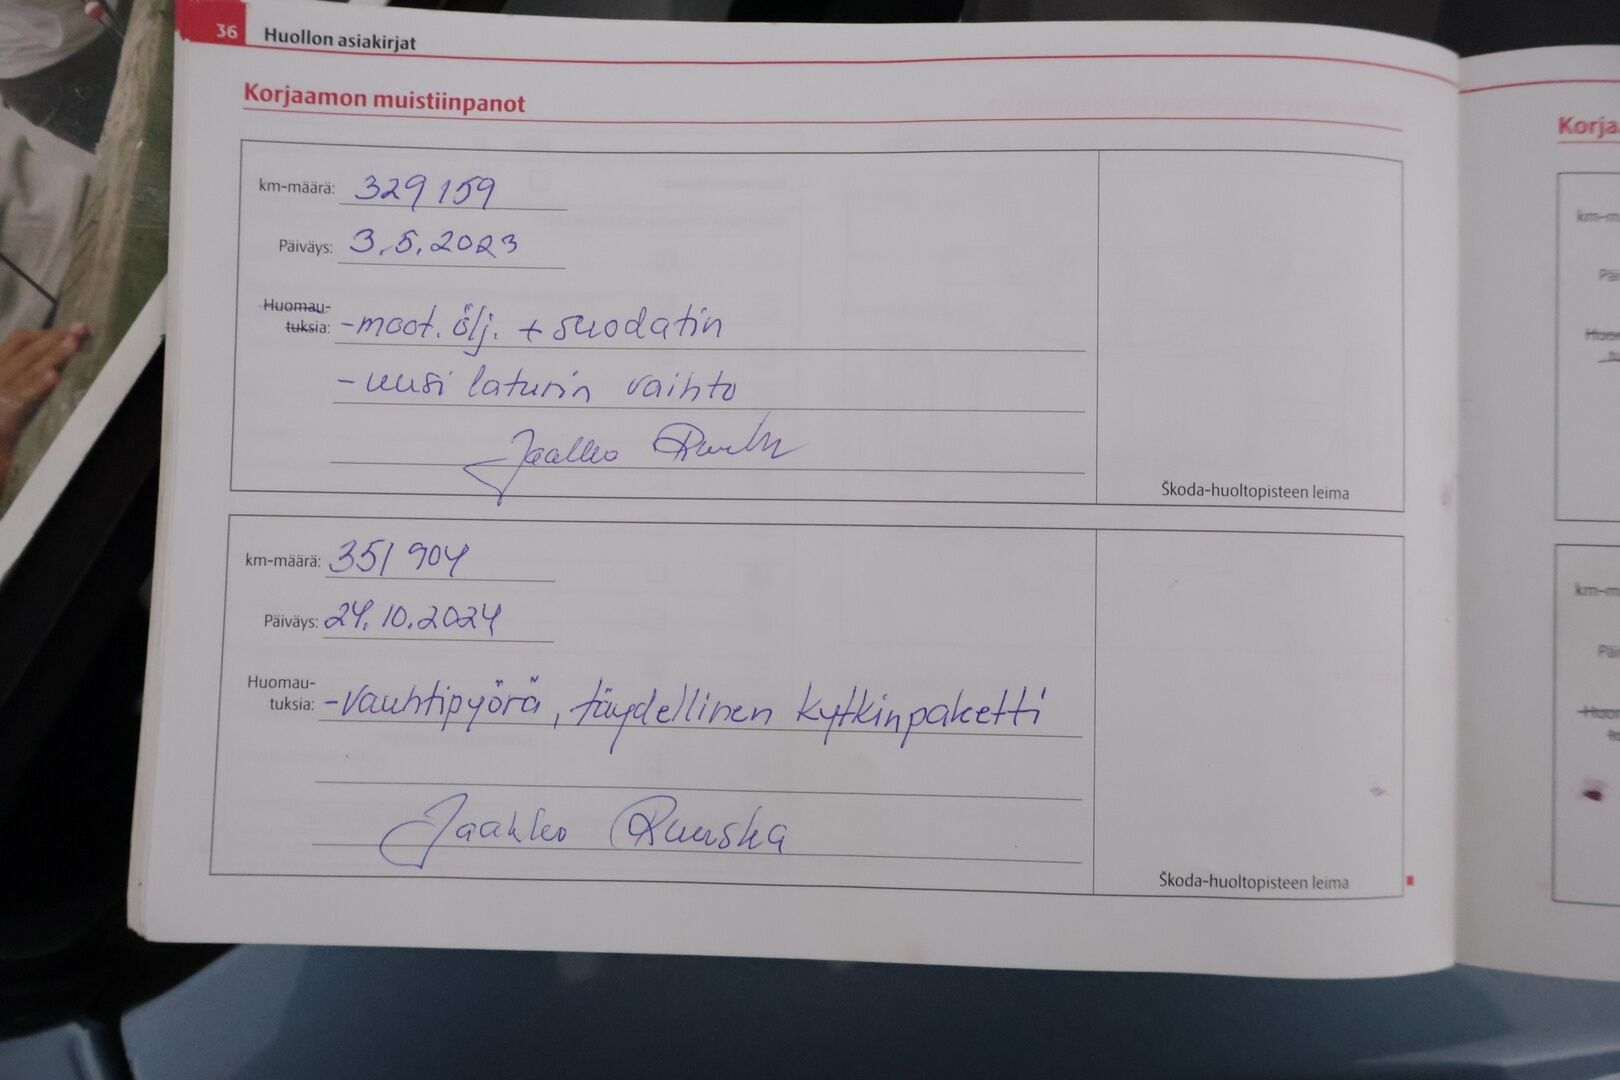 36 Huollon asiakirjat
Korjaamon muistiinpanot
km-määrä: 329 159
Päiväys: 3.5.2023
Huomau-
tuksia: -moot. ölj. + suodatin
- uusi laturin vaihto
Jaakko
Škoda-huoltopisteen leima
km-määrä: 351 904
Päiväys: 24.10.2024
Huomau-
tuksia: -vauhtipyörä, täydellinen kytkinpaketti
Jaakko Ruuska
Škoda-huoltopisteen leima
Korja
km-m
Päi
km-m
Päi